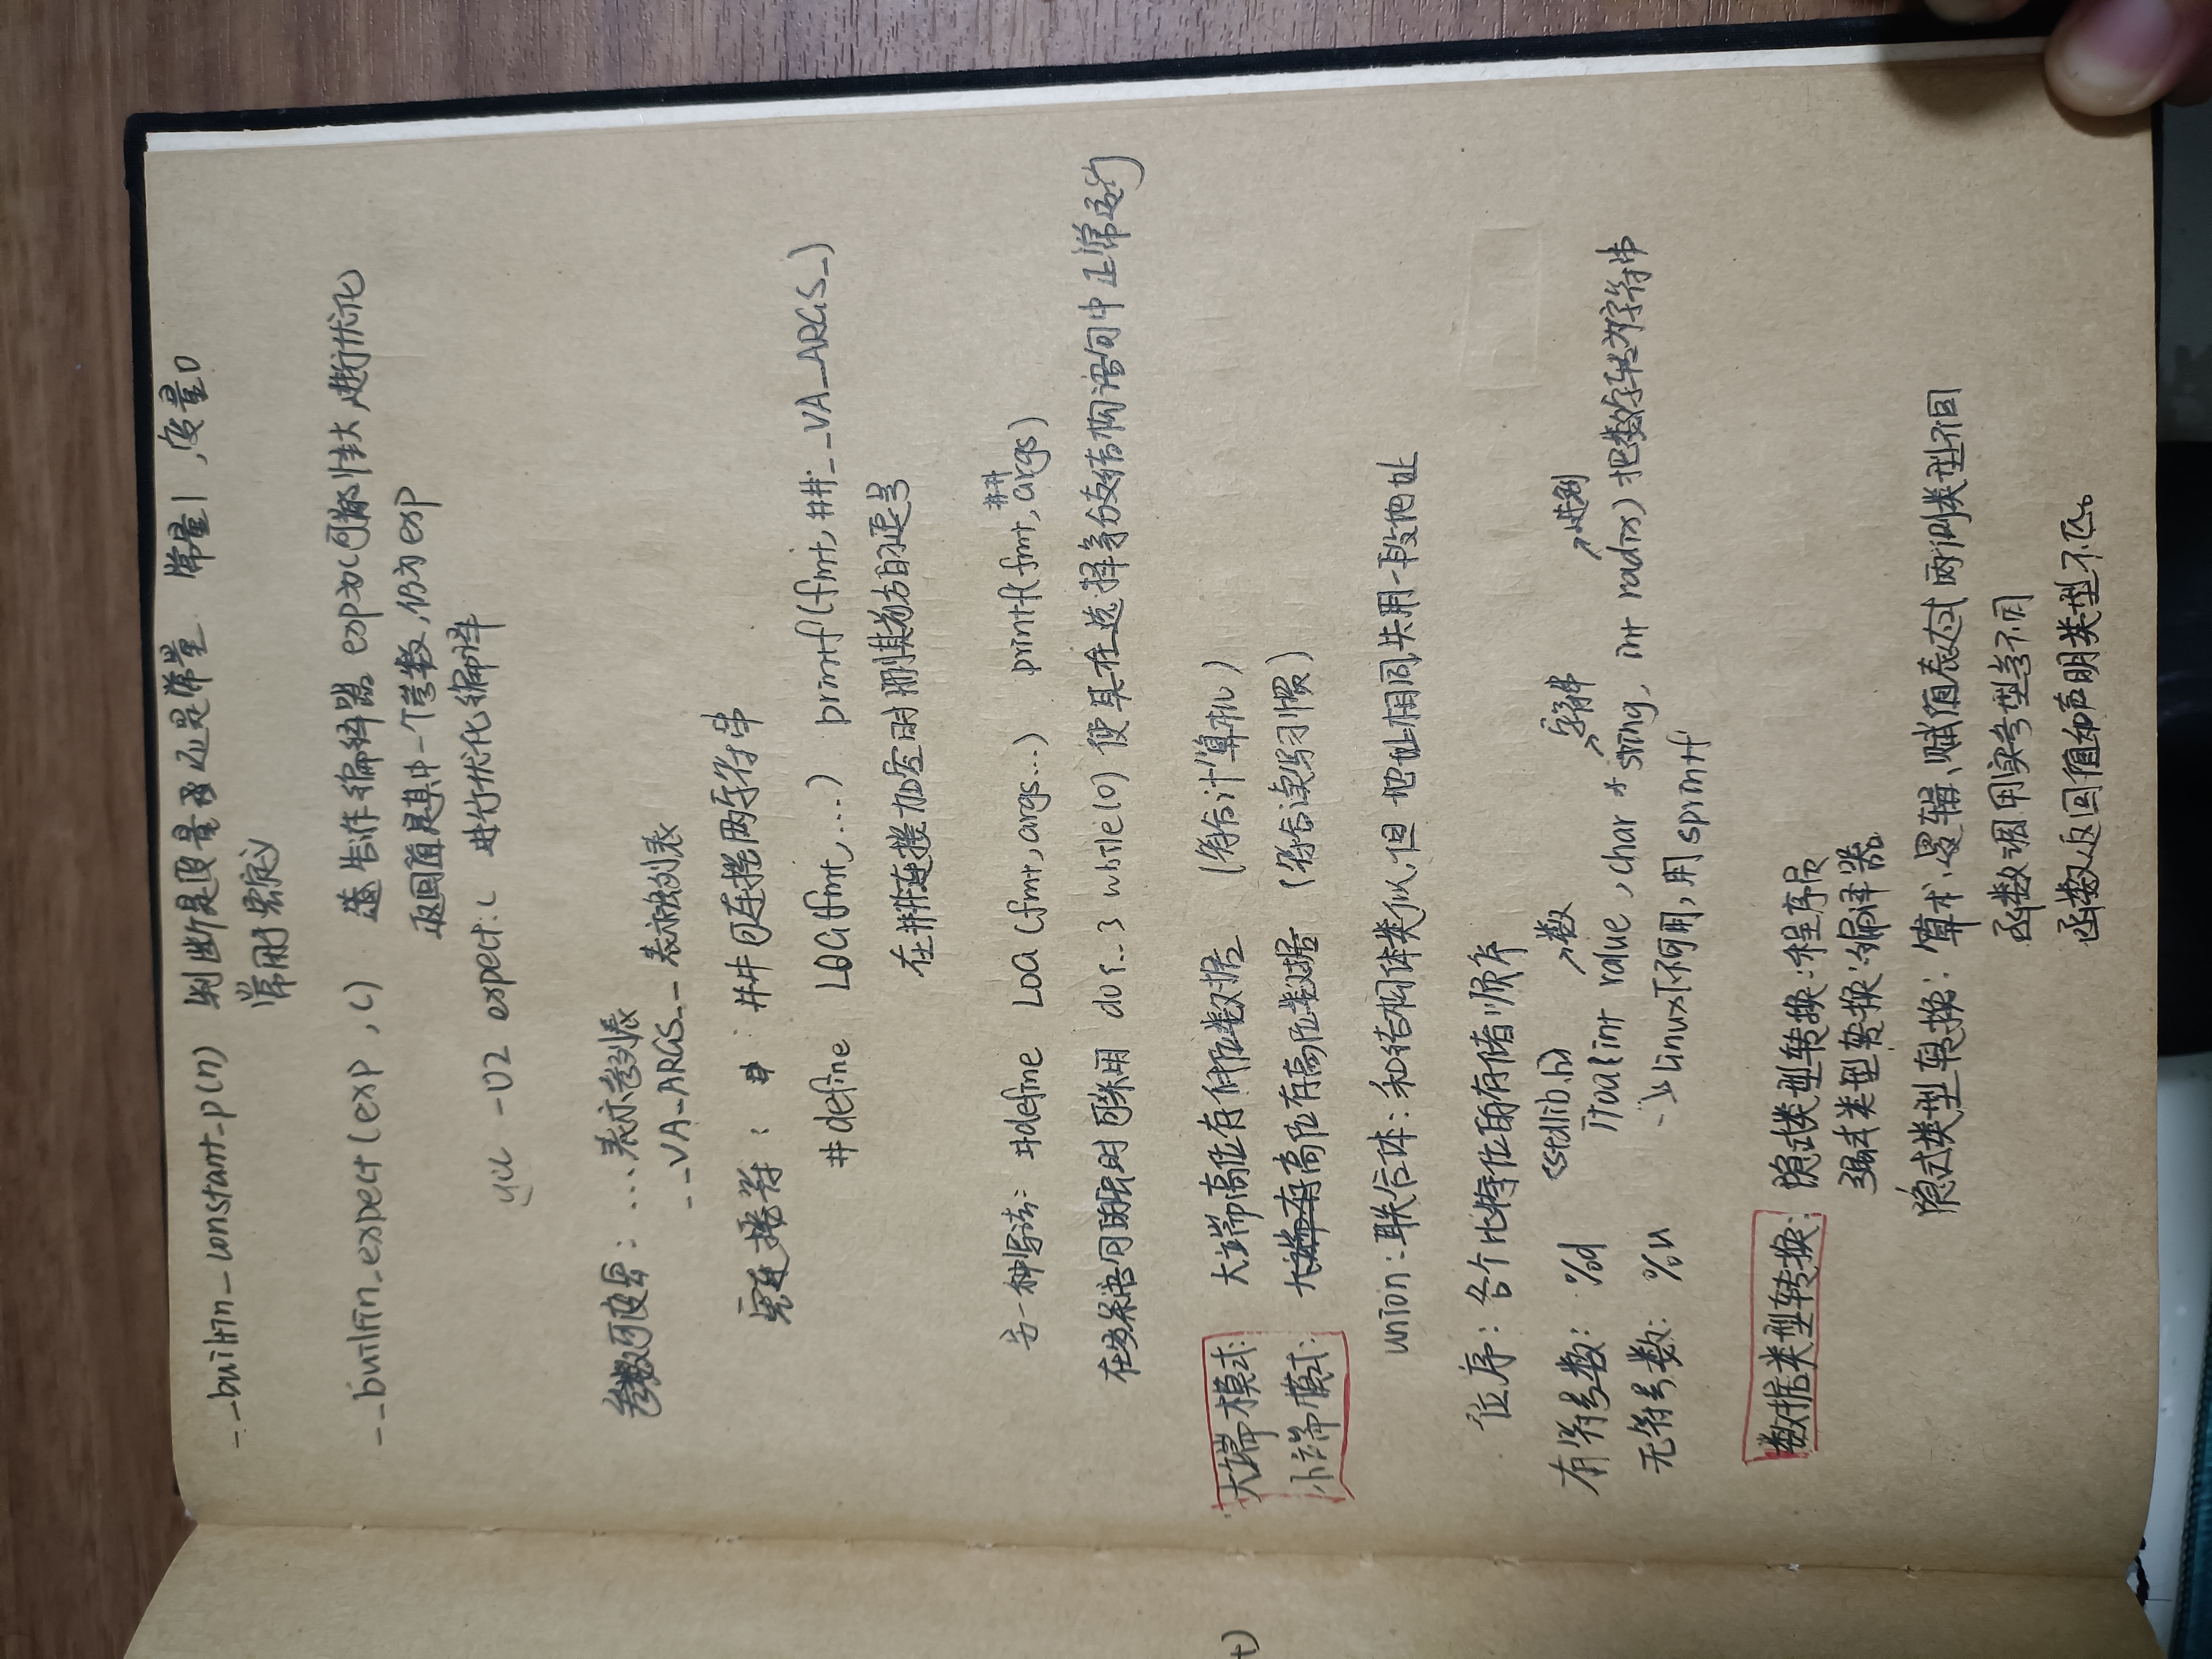 __builtin_constant_p(n) 判断是变量还是常量 常量1，变量0
常用于宏定义
__builtin_expect(exp , c) 告诉编译器 exp为c可能性大，进行优化
返回值是其中一个参数，仍为exp
gcc -O2 expect.c 进行优化编译
参数可变宏：...表示参列表
__VA_ARGS__ 表示列表
宏连接符： ##可连接两字符串
#define LOG(fmt,...) printf(fmt,##__VA_ARGS_)
在##连接加空时删其前方的逗号
另一种写法：#define LOG (fmt,args...) printf(fmt,##args)
在多条语句的宏时可采用 do{...} while(0) 使其在选择等分支结构语句中正常运行
大端模式： 大端高位存低位数据 (符合计算机)
小端模式： 高位存高位数据 (符合读写习惯)
union：联合体：和结构体类似，但 地址相同，共用一段地址
位序：各个比特位的存储顺序
<stdlib.h> 数 字符串 进制
有符号数：%d itoa(int value , char * string, int radix) 把数字转为字符串
无符号数：%u → Linux下不可用，用 sprintf
数据类型转换： 隐式类型转换：程序员
强式类型转换：编译器
隐式类型转换：算术、逻辑、赋值表达式两侧类型不同
函数调用实参型参不同
函数返回值和声明类型不匹。